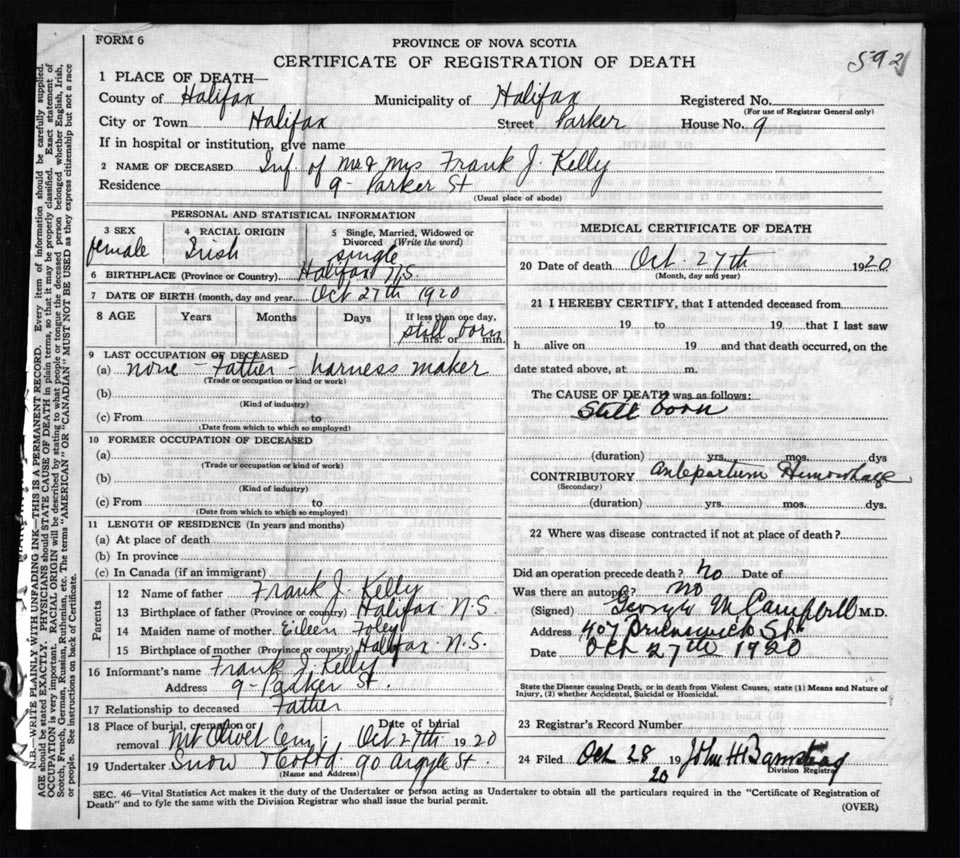 FORM 6
PROVINCE OF NOVA SCOTIA
CERTIFICATE OF REGISTRATION OF DEATH
592
1 PLACE OF DEATH—
County of Halifax Municipality of Halifax Registered No.
(For use of Registrar General only)
City or Town Halifax Street Parker House No. 9
If in hospital or institution, give name
2 NAME OF DECEASED Inf. of Mr & Mrs Frank J. Kelly
Residence 9 - Parker St
(Usual place of abode)
PERSONAL AND STATISTICAL INFORMATION
3 SEX female
4 RACIAL ORIGIN Irish
5 Single, Married, Widowed or Divorced (Write the word) single
6 BIRTHPLACE (Province or Country) Halifax N.S.
7 DATE OF BIRTH (month, day and year) Oct 27th 1920
8 AGE Years Months Days If less than one day, still born hrs. or min.
9 LAST OCCUPATION OF DECEASED
(a) none - Father - harness maker
(Trade or occupation or kind or work)
(b)
(Kind of industry)
(c) From to
(Date from which to which so employed)
10 FORMER OCCUPATION OF DECEASED
(a)
(Trade or occupation or kind of work)
(b)
(Kind of industry)
(c) From to
(Date from which to which so employed)
11 LENGTH OF RESIDENCE (In years and months)
(a) At place of death
(b) In province
(c) In Canada (if an immigrant)
Parents
12 Name of father Frank J. Kelly
13 Birthplace of father (Province or country) Halifax N.S.
14 Maiden name of mother Eileen Foley
15 Birthplace of mother (Province or country) Halifax N.S.
16 Informant's name Frank J. Kelly
Address 9 - Parker St.
17 Relationship to deceased Father
18 Place of burial, cremation or removal Mt Olivet Cem. Date of burial Oct 27th 1920
19 Undertaker Snow & Co Ltd. 90 Argyle St.
(Name and Address)
MEDICAL CERTIFICATE OF DEATH
20 Date of death Oct. 27th 1920
(Month, day and year)
21 I HEREBY CERTIFY, that I attended deceased from
19 to 19 that I last saw
h alive on 19 and that death occurred, on the
date stated above, at m.
The CAUSE OF DEATH was as follows:
Still born
(duration) yrs. mos. dys
CONTRIBUTORY Antepartum Hemorrhage
(Secondary)
(duration) yrs. mos. dys.
22 Where was disease contracted if not at place of death?
Did an operation precede death? No Date of
Was there an autopsy? No
(Signed) George M Campbell M.D.
Address 407 Brunswick St.
Date Oct 27th 1920
State the Disease causing Death, or in death from Violent Causes, state (1) Means and Nature of
Injury, (2) whether Accidental, Suicidal or Homicidal.
23 Registrar's Record Number
24 Filed Oct 28 1920 John H Barnstead
Division Registrar
SEC. 46—Vital Statistics Act makes it the duty of the Undertaker or person acting as Undertaker to obtain all the particulars required in the "Certificate of Registration of
Death" and to fyle the same with the Division Registrar who shall issue the burial permit.
(OVER)
N.B.—WRITE PLAINLY WITH UNFADING INK—THIS IS A PERMANENT RECORD. Every item of information should be carefully supplied.
AGE should be stated EXACTLY. PHYSICIANS should STATE CAUSE OF DEATH in plain terms, so that it may be properly classified. Exact statement of
OCCUPATION is very important. RACIAL ORIGIN will be described by stating to what people or tongue the deceased person belonged whether English, Irish,
Scotch, French, German, Russian, Ruthenian, etc. The terms "AMERICAN" OR "CANADIAN" MUST NOT BE USED as they express citizenship but not a race
or people. See instructions on back of Certificate.